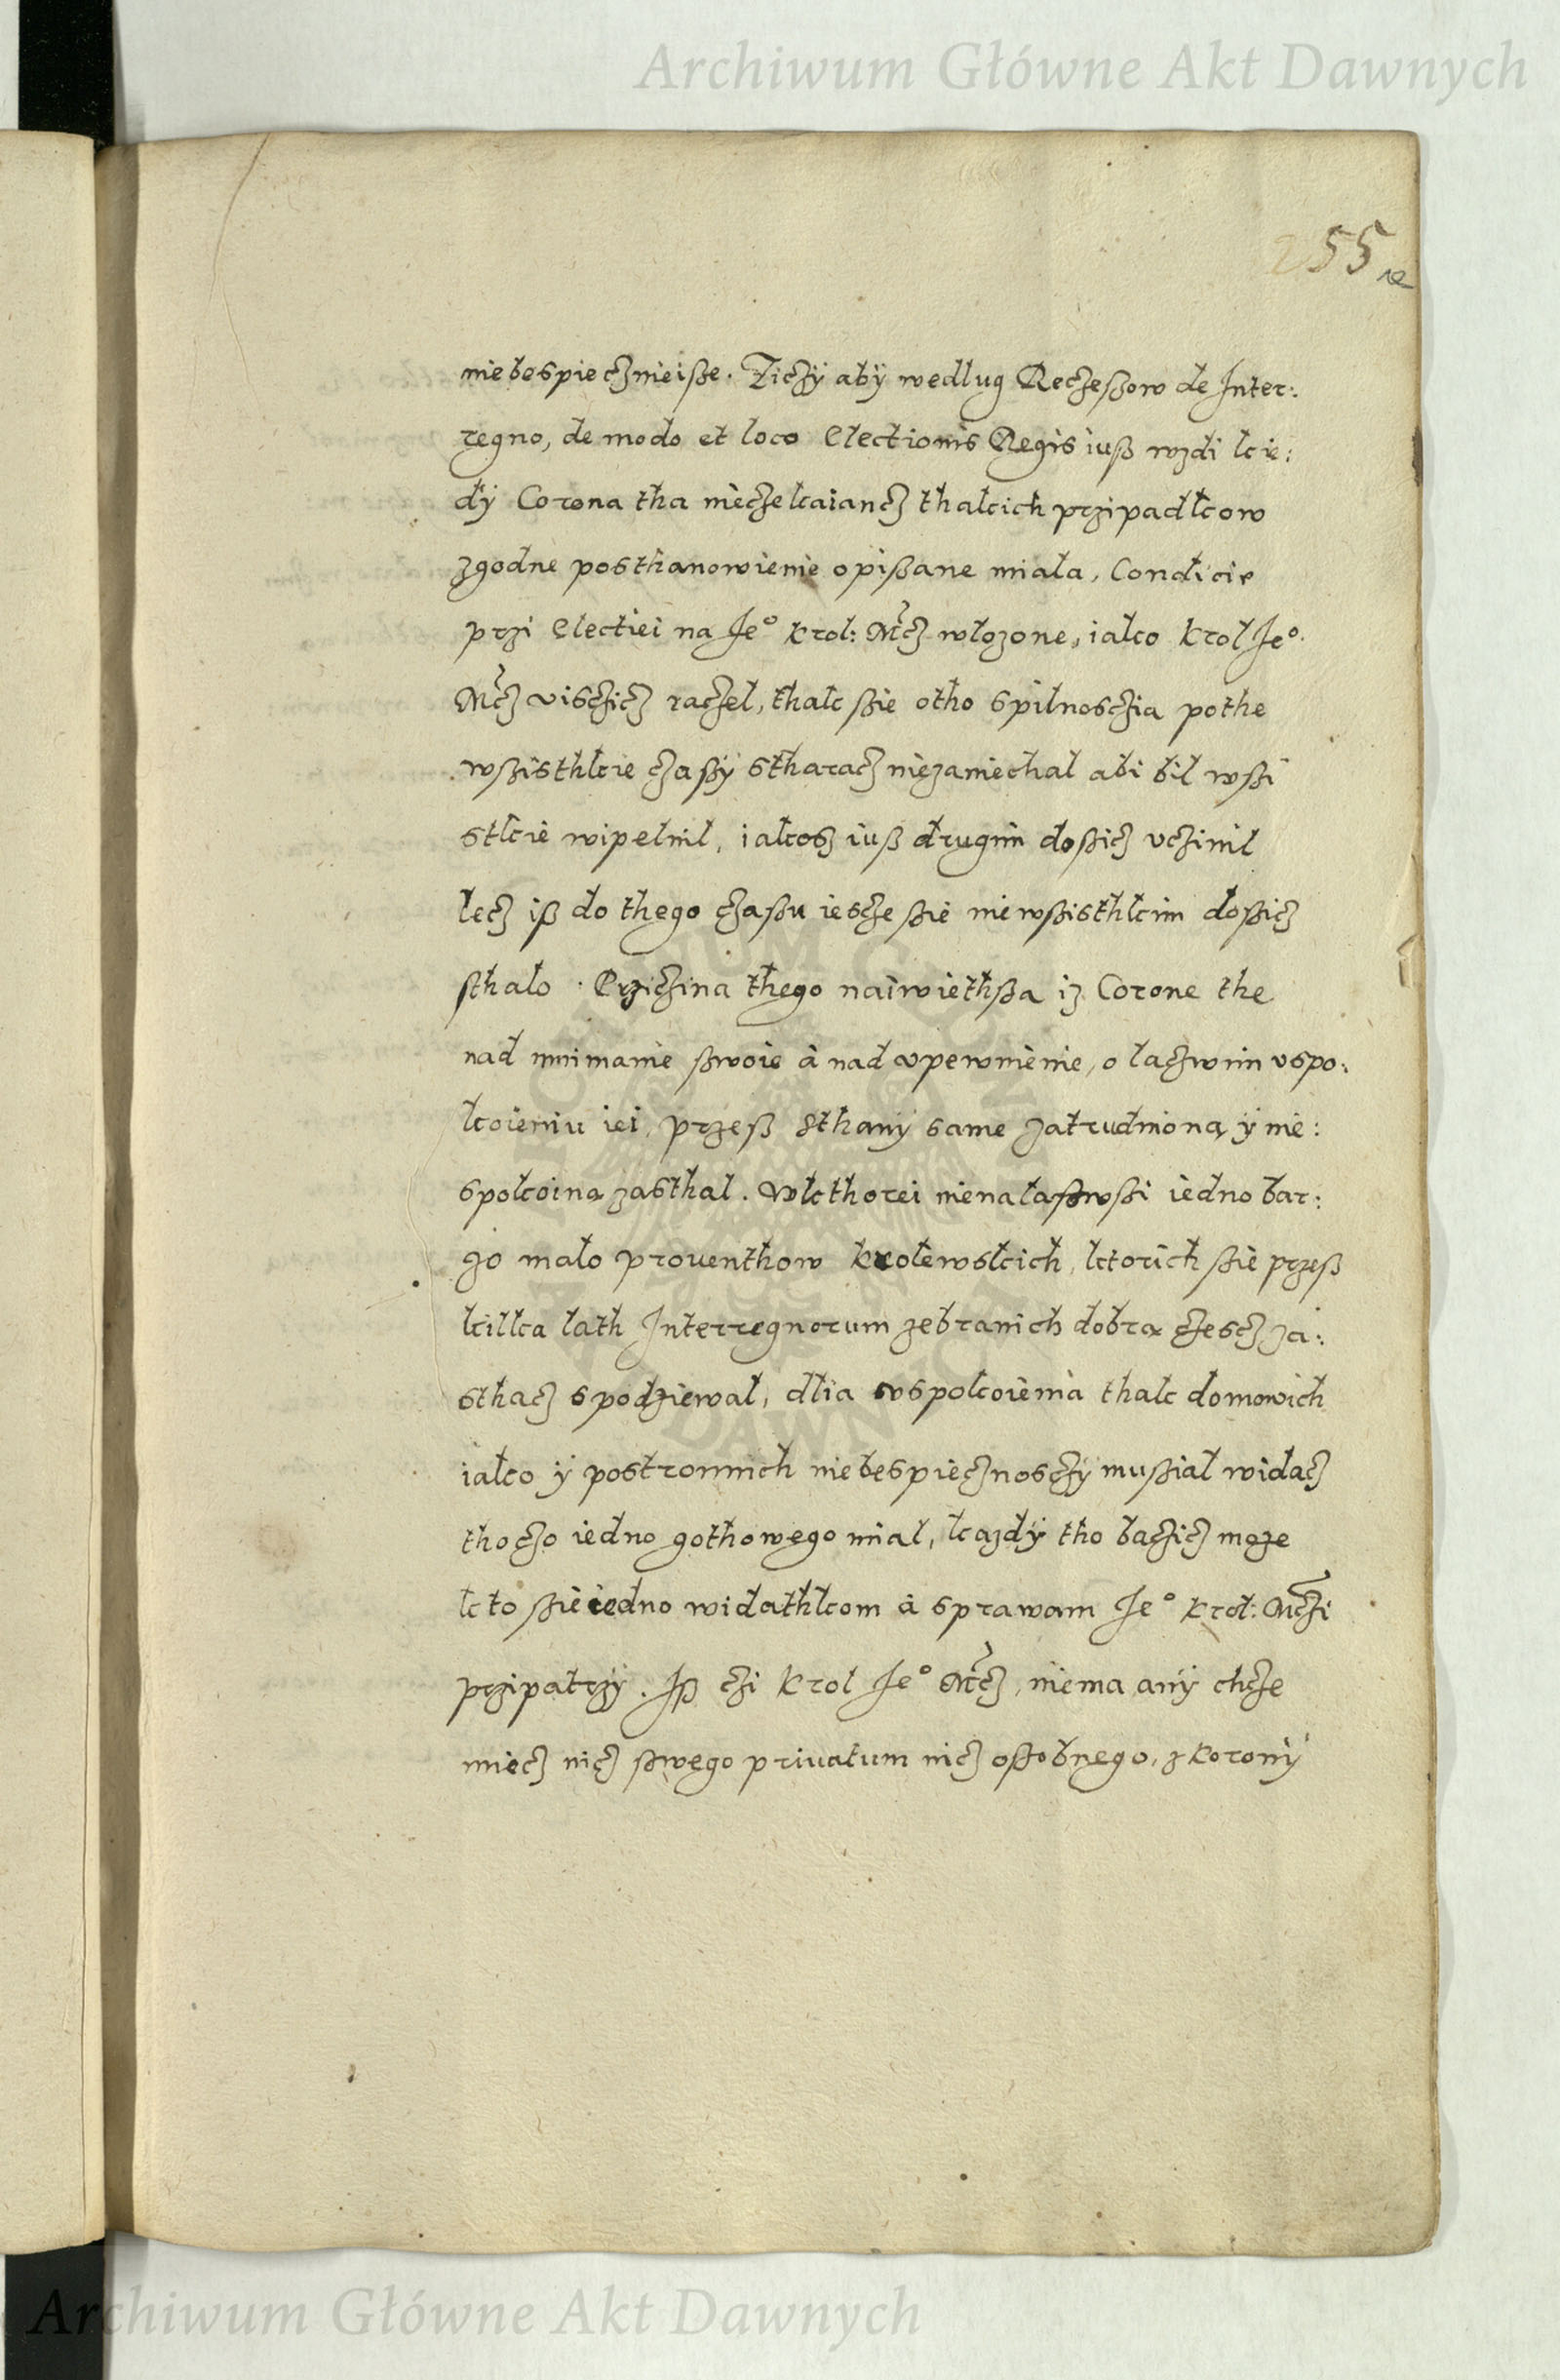 Archiwum Główne Akt Dawnych
255
niebespiecznieiße. Ziczÿ abÿ wedlug Reczeßow de Inter:
regno, de modo et loco Electionis Regis iuß wzdi kie:
dÿ Corona tha nieczekaiancz thakich przipadkow
zgodne posthanowienie opißane miala, Condicie
przi Electiei na Je° Krol: Mcz wlozone, iako Krol Je°
Mcz visczicz raczel, thak ßie otho spilnosczia pothe
wßisthkie czaßÿ stharacz niezaniechal abi bil wßi
stkie wipelnil, iakosz iuß drugim doßicz vczinil
lecz iß do thego czaßu iescze ßie niewßisthkim doßicz
sthalo. Prziczina thego naiwiethßa iz Corone the
nad mnimanie ßwoie à nad vpewnienie, o laczwim vspo:
koieniu iei, przeß Sthanÿ same zatrudniona ÿ nie:
spokoina zasthal. Wkthorei nienalaßwßi iedno bar:
zo malo prouenthow Krolewskich, ktorich ßie przeß
kilka lath Interregnorum zebranich dobra czescz za:
sthacz spodziewal, dlia vspokoienia thak domowich
iako ÿ postronnich niebespiecznosczÿ mußial widacz
thoczo iedno gothowego mial, kazdÿ tho baczicz moze
kto ßie iedno widathkom à sprawam Je° Krol: Mczi
przipatrzÿ. Iß czi Krol Je° Mcz, niema anÿ chcze
miecz nicz ßwego priuatum nicz oßobnego, z Koronÿ
Archiwum Główne Akt Dawnych